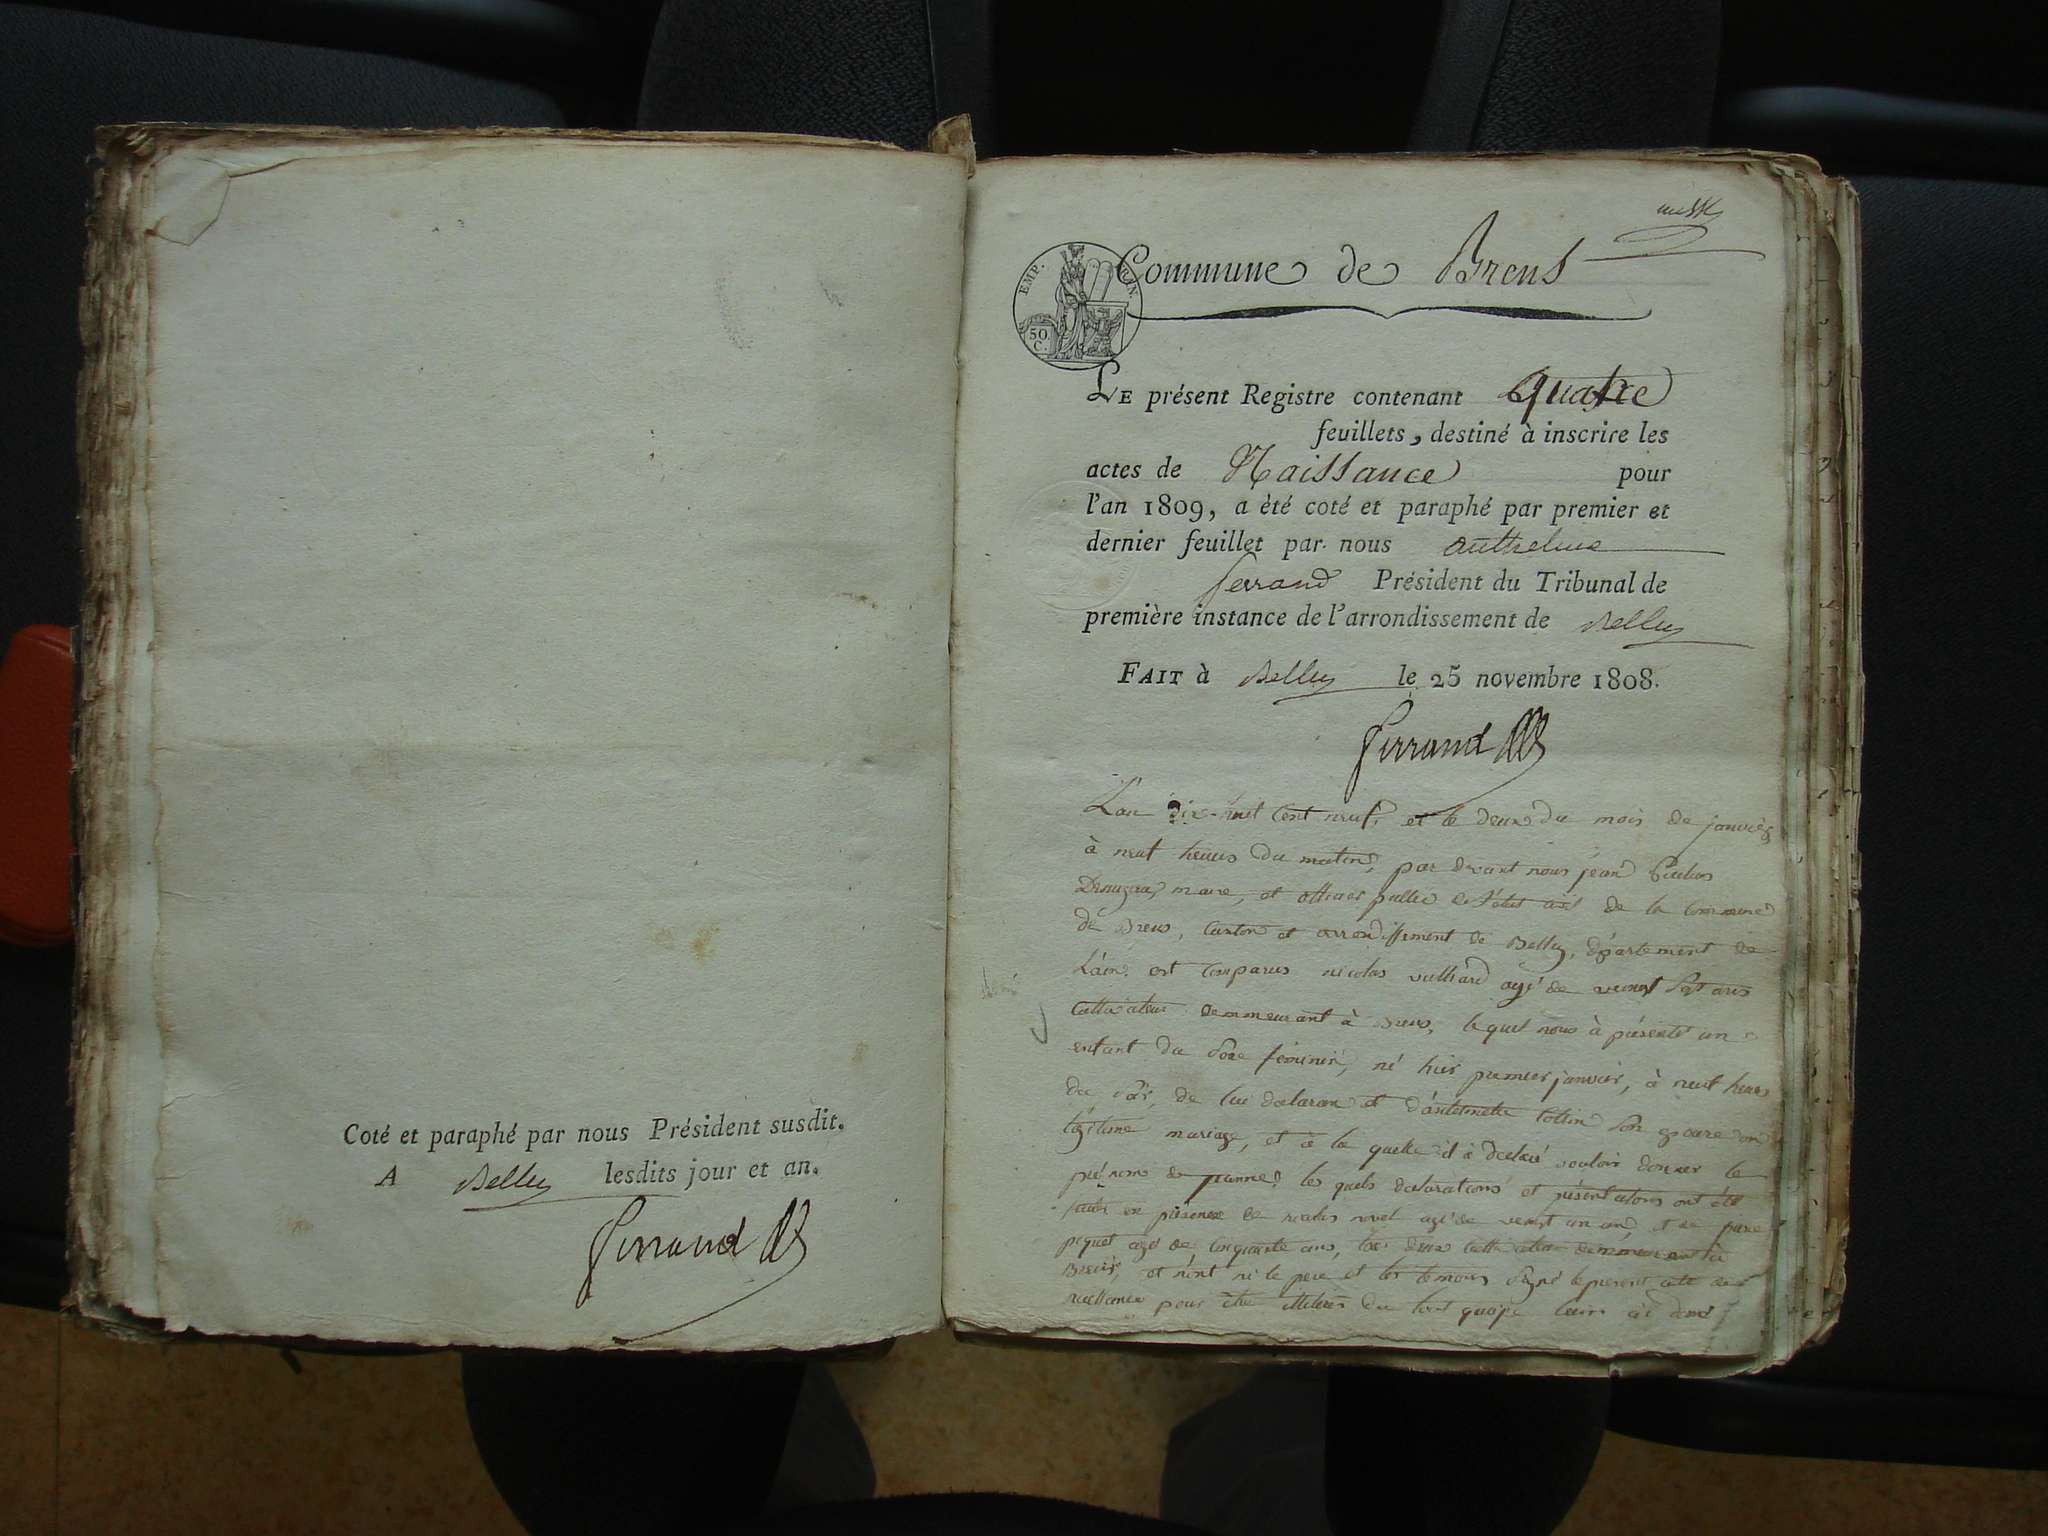 Coté et paraphé par nous Président susdit.
A Belley lesdits jour et an.
Ferrand
Commune de Brens
EMP. FRAN.
50 C.
LE présent Registre contenant quatre
feuillets, destiné à inscrire les
actes de Naissance pour
l'an 1809, a été coté et paraphé par premier et
dernier feuillet par nous anthelme
ferrand Président du Tribunal de
première instance de l'arrondissement de Belley
FAIT à Belley le 25 novembre 1808.
Ferrand
L'an dix-huit cent neuf, et le deux du mois de janvier
à neuf heures du matin, par devant nous jean
maire, et officier public de l'état civil de la commune
de Brens, canton et arrondissement de Belley, département de
L'ain. est comparus nicolas vulliard agé de veingt sept ans
cultivateur demmeurant à Brens, lequel nous à présenté un
enfant du sexe féminin, né hier premier janvier, à neuf heures
du soir, de lui déclarant et d'antelmette son épouse en
légitime mariage, et à la quelle il à déclaré vouloir donner le
prénom de jeanne, les quels déclarations et présentations ont été
faites en présence de nicolas agé de veingt un ans, et de
piquet agé de cinquante ans, tous deux cultivateur demmeurant à
Brens, et n'ont ni le pere et les temoins signé le present acte de
naissance pour être illiterés du tout quoique